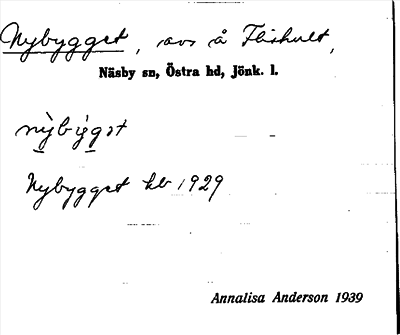 Nybygget, avs å Flishult,
Näsby sn, Östra hd, Jönk. l.
nỳbýgət
Nybygget hb 1929
Annalisa Anderson 1939